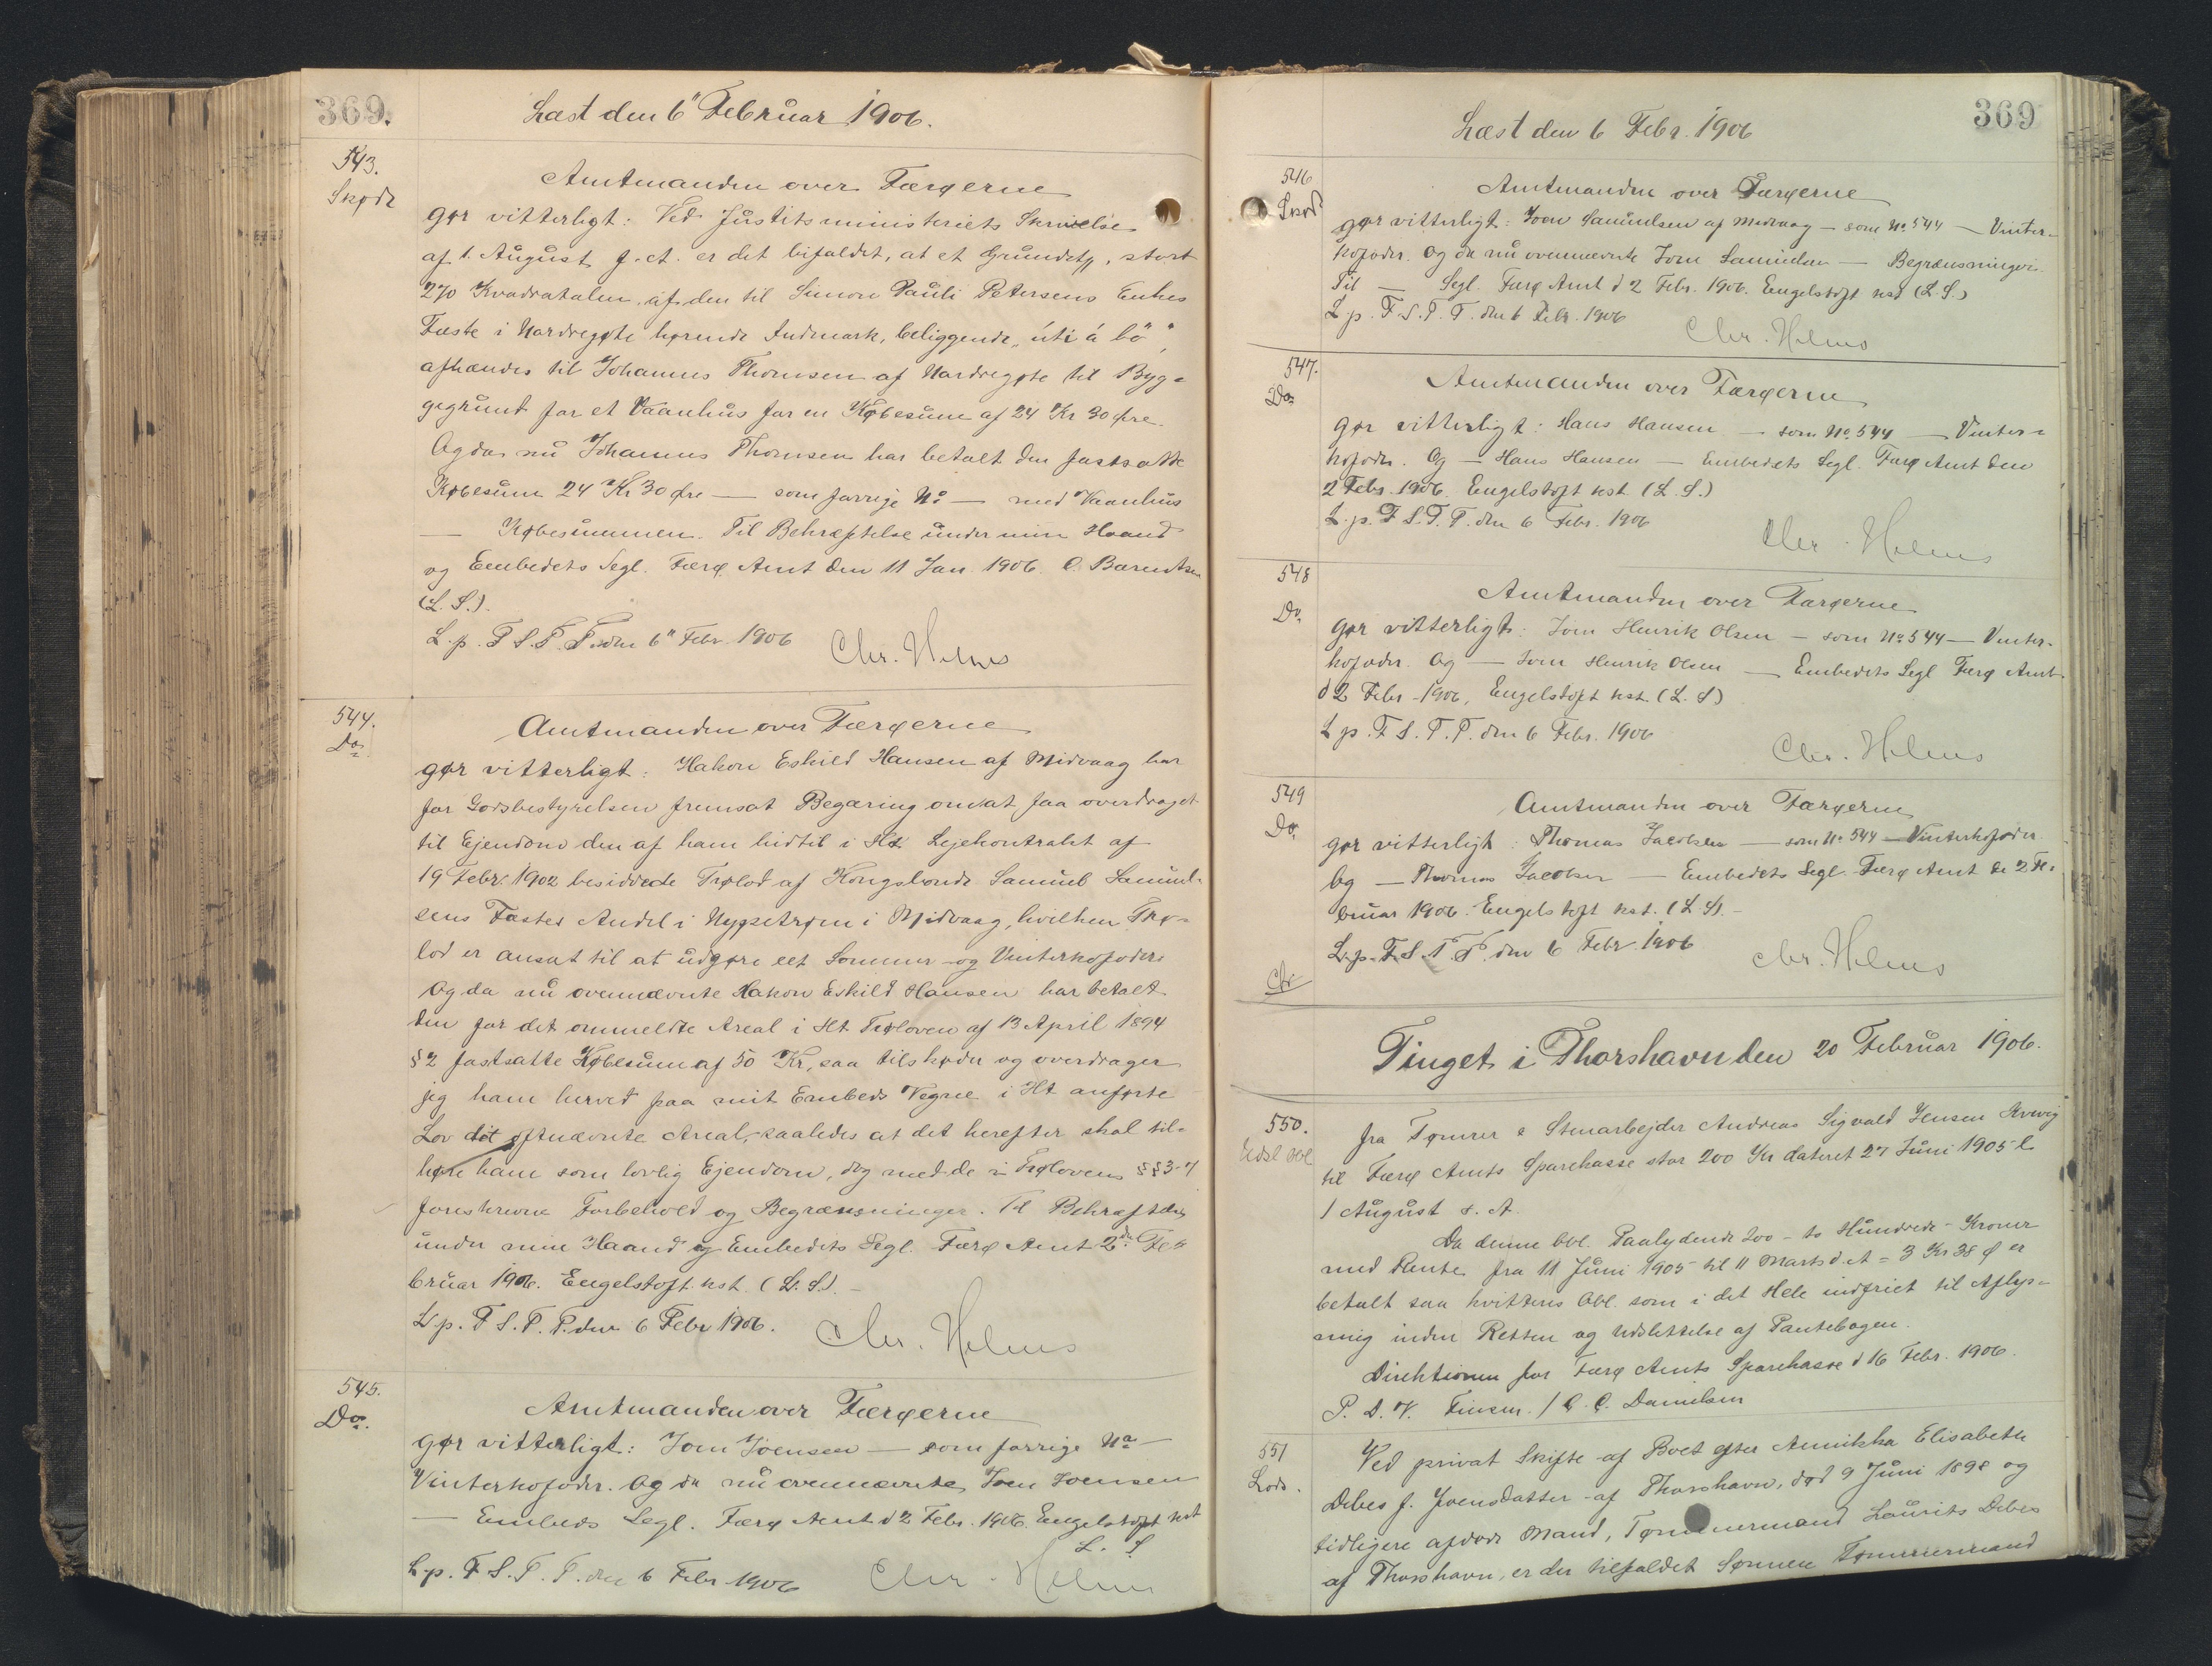 369.
Læst den 6" Februar 1906.
543.
Skøde
Amtmanden over Færøerne
gør vitterligt: Ved Justitsministeriets Skrivelse
af 1. August f. A. er det bifaldet, at et Grundstk, stort
270 Kvadratalen, af den til Simon Pauli Petersens Enkes
Fæste i Nordregøte hørende Indmark, beliggende "úti á bö",
afhændes til Johannes Thomsen af Nordregøte til Byg-
gegrund for et Vaanhus for en Købesum af 24 Kr 30 Øre.
Og da nu Johannes Thomsen har betalt den fastsatte
Købesum 24 Kr 30 Øre — som forrige No — med Vaanhus
— Købesummen. Til Bekræftelse under min Haand
og Embedets Segl. Færø Amt den 11 Jan. 1906. C. Bærentsen
(L. S.).
L. p. F. S. T. T. den 6" Febr. 1906
Chr. Helms
544.
Do.
Amtmanden over Færøerne
gør vitterligt: Hakon Eskild Hansen af Midvaag har
for Godsbestyrelsen fremsat Begæring om at faa overdraget
til Ejendom den af ham hidtil i Ht. Lejekontrakt af
19 Febr. 1902 besiddede Trølod af Kongsbonde Samuel Samuel-
sens Fæstes Andel i Nygsetrøm i Midvaag, hvilken Trø-
lod er ansat til at udgøre eet Sommer- og Vinterkofoder.
Og da nu ovennævnte Hakon Eskild Hansen har betalt
den for det ommeldte Areal i Ht. Trøloven af 13 April 1894
§ 2 fastsatte Købesum af 50 Kr, saa tilskøder og overdrager
jeg ham herved paa mit Embeds Vegne i Ht anførte
Lov det oftnævnte Areal, saaledes at det herefter skal til-
høre ham som lovlig Ejendom, dog med de i Trøloven §§ 3-7
foreskrevne Forbehold og Begrænsninger. Til Bekræftelse
under min Haand og Embedets Segl. Færø Amt 2de Fe-
bruar 1906. Engelstoft kst. (L. S.). –
L. p. F. S. T. T. den 6 Febr 1906.
Chr. Helms
545.
Do.
Amtmanden over Færøerne
gør vitterligt: Joen Joensen — som forrige No —
Vinterkofoder. Og da nu ovennævnte Joen Joensen
— Embeds Segl. Færø Amt d 2 Febr. 1906. Engelstoft kst
L. S
L. p. F. S. T. T. den 6 Febr 1906
Chr. Helms
369
Læst den 6 Febr. 1906
546
Skød
Amtmanden over Færøerne
gør vitterligt: Joen Samuelsen af Midvaag — som No 544 — Vinter-
kofoder. Og da nu ovennævnte Joen Samuelsen — Begrænsninger.
Til — Segl. Færø Amt d 2 Febr. 1906. Engelstoft kst (L. S.)
L. p. F. S. T. T. den 6 Febr. 1906
Chr. Helms
547.
Do
Amtmanden over Færøerne
gør vitterligt: Hans Hansen — som No. 544 — Vinter-
kofoder. Og — Hans Hansen — Embedets Segl. Færø Amt den
2 Febr. 1906. Engelstoft kst (L. S.)
L. p. F. S. T. T. den 6 Febr. 1906
Chr. Helms
548
Do
Amtmanden over Færøerne
gør vitterligt: Joen Henrik Olsen — som No 544 — Vinter-
kofoder. Og — Joen Henrik Olsen — Embedets Segl Færø Amt
d 2 Febr. 1906, Engelstoft kst. (L. S)
L. p. F. S. T. T. den 6 Febr. 1906
Chr. Helms
549
Do
Amtmanden over Færøerne
gør vitterligt: Thomas Jacobsen — som No 544 — Vinterkofoder.
Og — Thomas Jacobsen — Embedets Segl. Færø Amt de 2 Fe-
bruar 1906. Engelstoft kst. (L. S). –
L. p. F. S. T. T. den 6 Febr 1906
Chr. Helms
Tinget i Thorshavn den 20 Februar 1906.
550.
Udsl Obl
fra Tømrer & Stenarbejder Andreas Sigvald Jensen Kvivig
til Færø Amts Sparekasse stor 200 Kr dateret 27 Juni 1905 l
1 August s. A.
Da denne Obl. Paalydende 200 - to Hundrede - Kroner
med Rente fra 11 Juni 1905 til 11 Marts d. A = 3 Kr 38 Ø er
betalt saa kvitteres Obl. som i det Hele indfriet til Aflys-
ning inden Retten og Udslettelse af Pantebogen.
Direktionen for Færø Amts Sparekasse d 16 Febr. 1906.
P. D. V. Finsen. / C. C. Danielsen
551
Lods.
Ved privat Skifte af Boet efter Annikka Elisabeth
Debes f. Joensdatter af Thorshavn, død 9 Juni 1898 og
tidligere afdøde Mand, Tømmermand Laurits Debes
af Thorshavn, er der tilfaldet Sønnen Tømmermand